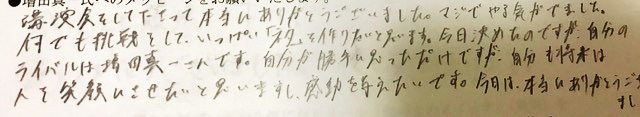 ●増田真一氏へのメッセージをお願いいたします。
講演会をして下さって本当にありがとうございました。マジでやる気がでました。
何でも挑戦をして、いっぱい「ネタ」を作りたいと思います。今日決めたのですが、自分の
ライバルは増田真一さんです。自分が勝手に思っただけですが、自分も将来は
人を笑顔にさせたいと思いますし、感動を与えたいです。今日は、本当にありがとうござ
す